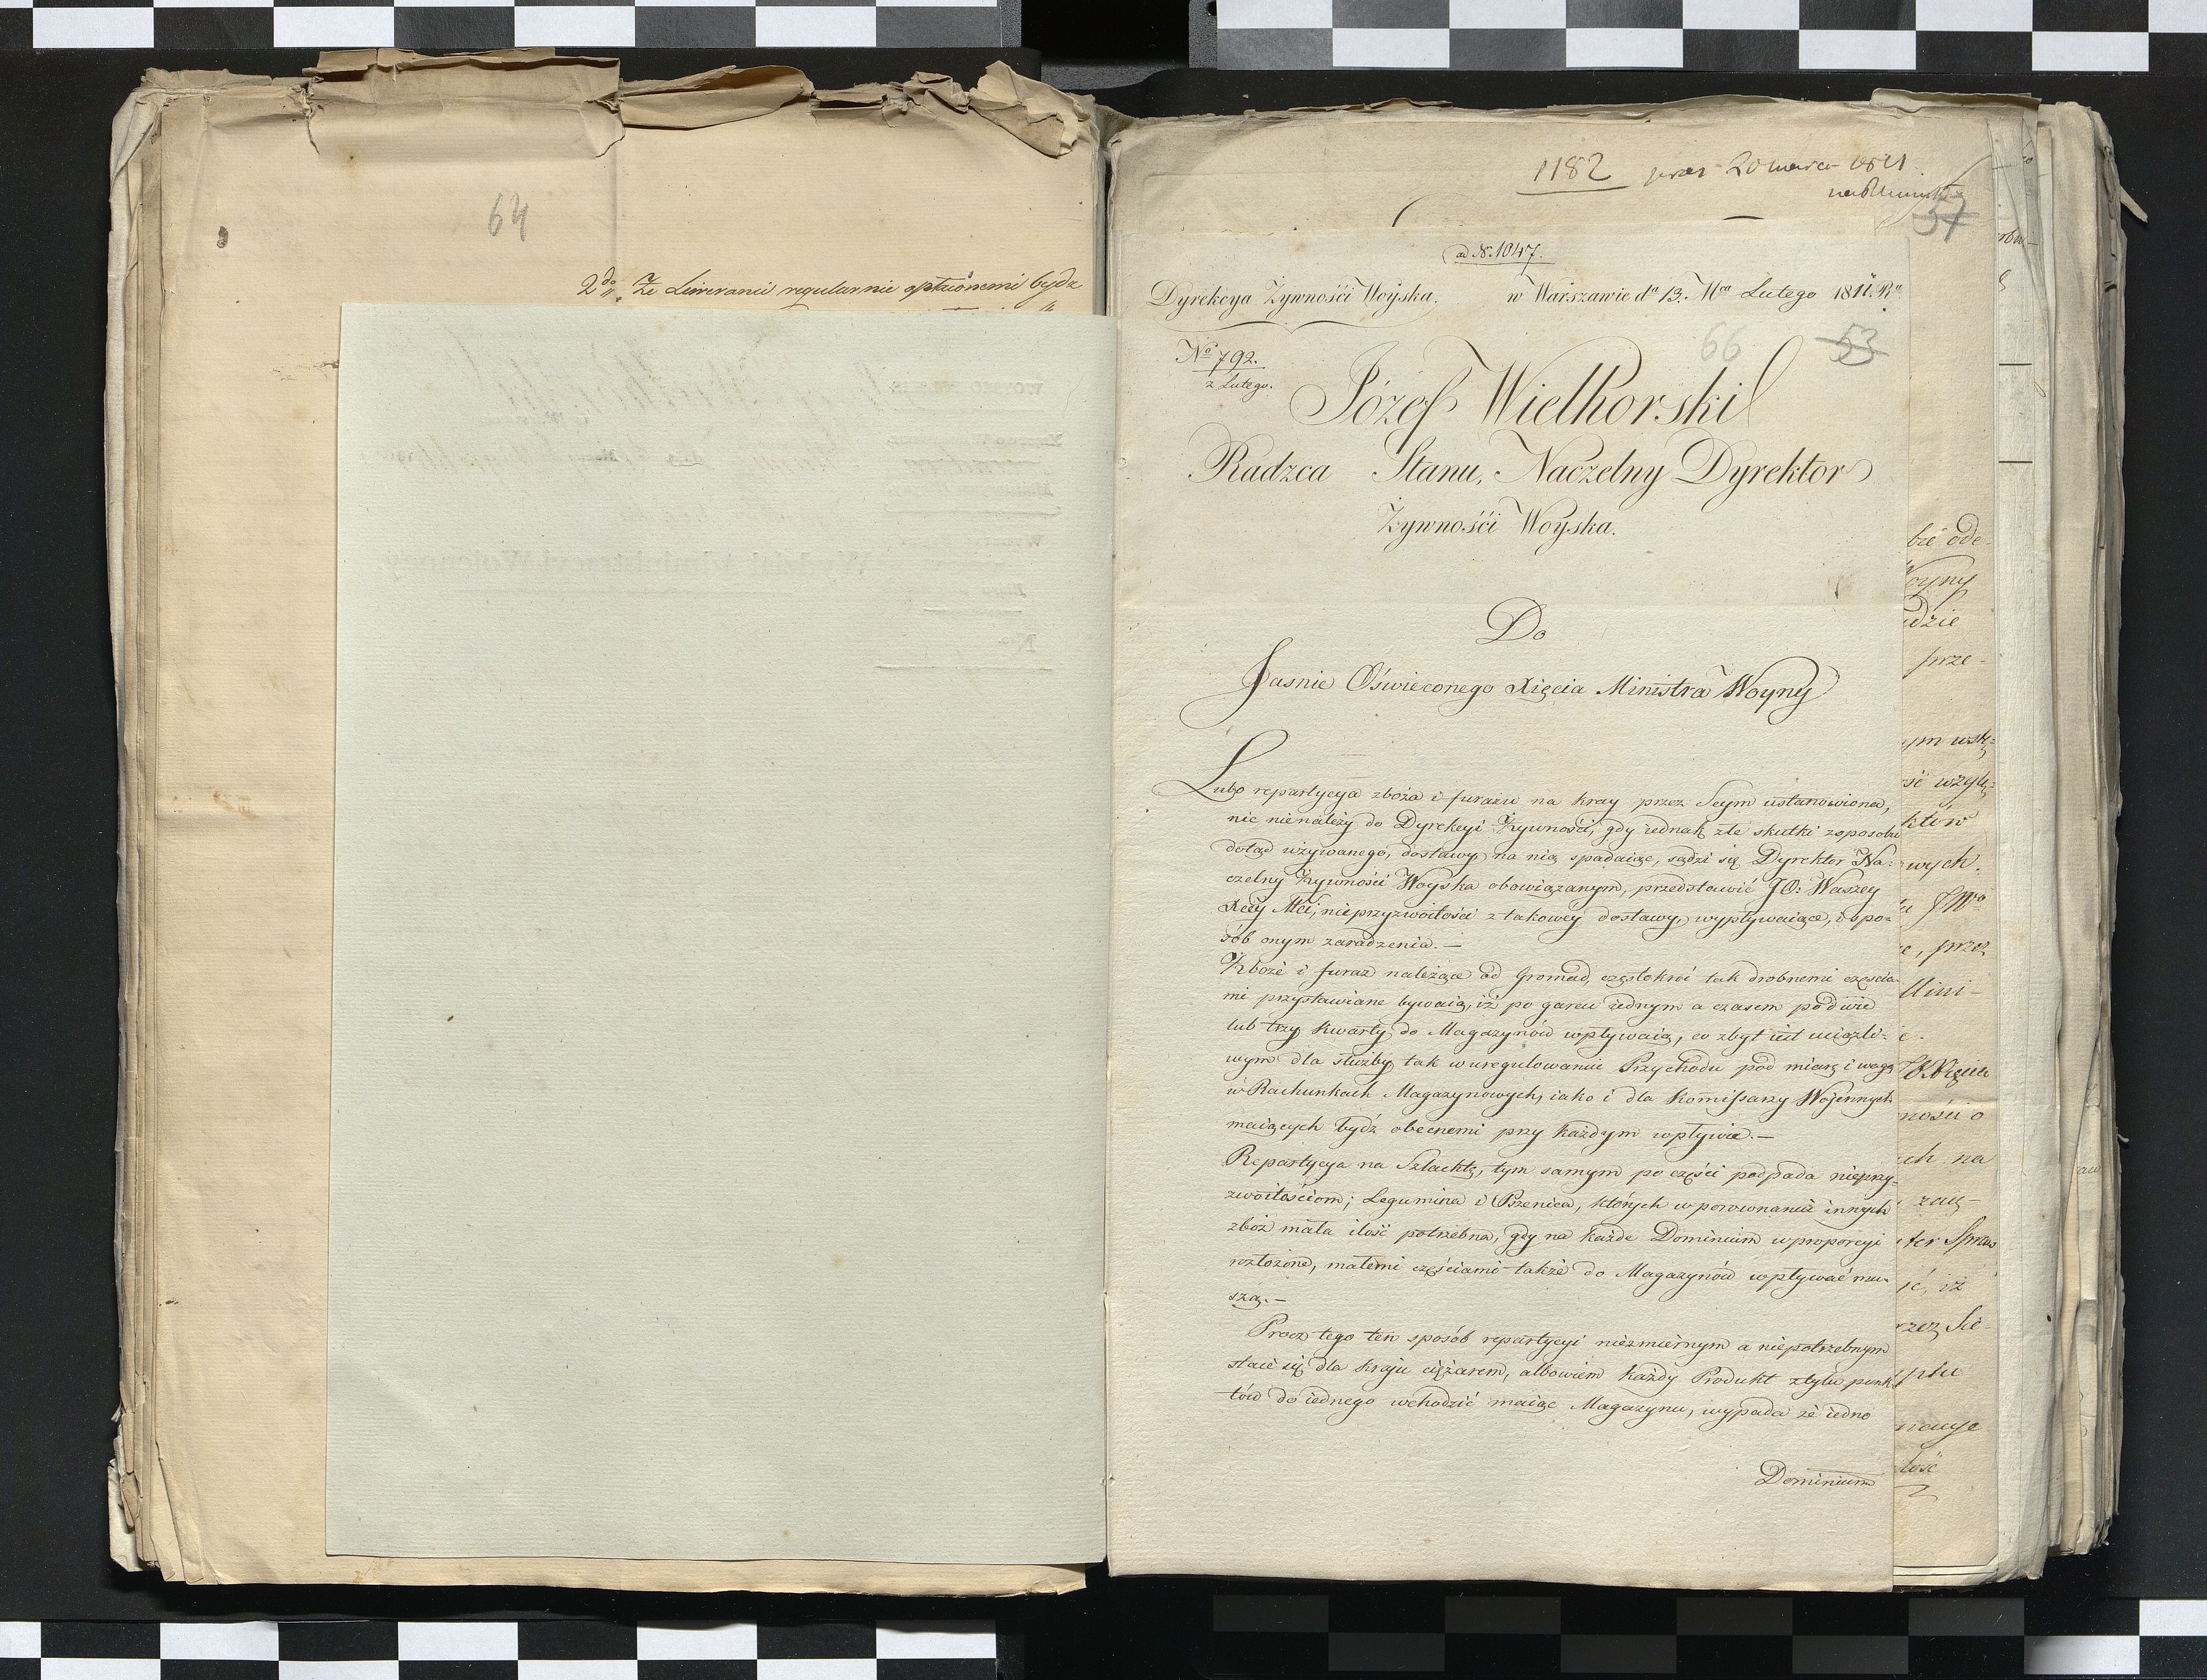 64
2do Że Liweranci regularnie opłaconemi bydź
1182 prez 20 marca 1811
57
ad Nr. 1047.
Dyrekcya Żywnośći Woyska. w Warszawie da 13. Mca Lutego 1811. Ru
66 53
No 792.
z Lutego.
Józef Wielhorski
Radzca Stanu, Naczelny Dyrektor
Żywnośći Woyska.
Do
Jasnie Oświeconego Xięcia Ministra Woyny
Lubo repartycya zboża i furażu na kray przez Seym ustanowiona,
nic nienależy do Dyrekcyi Żywności, gdy iednak złe skutki zsposobu
dotąd używanego, dostawy na nią spadaiące, sądzi się Dyrektor Na-
czelny Żywności Woyska obowiązanym, przedstawić JO: Waszey
Xcey Mci, nieprzyzwoitości z takowey dostawy wypływaiące, i spo-
sób onym zaradzenia.—
Zboże i furaż należące od Gromad, częstokroć tak drobnemi częścia-
mi przystawiane bywaią, iż po garcu iednym a czasem po dwie
lub trzy kwarty do Magazynów wpływaią, co zbyt iest uciążli-
wym dla służby tak w uregulowaniu Przychodu pod miarę i wagę
w Rachunkach Magazynowych, iako i dla Komissarzy Wojennych
maiących bydź obecnemi przy każdym wpływie.—
Repartycya na Szlachtę, tym samym po części podpada nieprzy-
zwoitościom; Legumina i Pszenica, których w porównaniu innych
zbóż mała ilość potrzebna, gdy na każde Dominium w proporcyi
rozłożone, małemi częściami także do Magazynów wpływać mu-
szą.—
Procz tego ten sposób repartycyi niezmiernym a niepotrzebnym
staie się dla kraju ciężarem, albowiem każdy Produkt z tylu punk-
tów do iednego wchodzić maiąc Magazynu, wypada że iedno
Dominium
bie ode-
Woyny
prze-
wych.
przez
Mini-
ności o
ch na
ter Spraw
iż